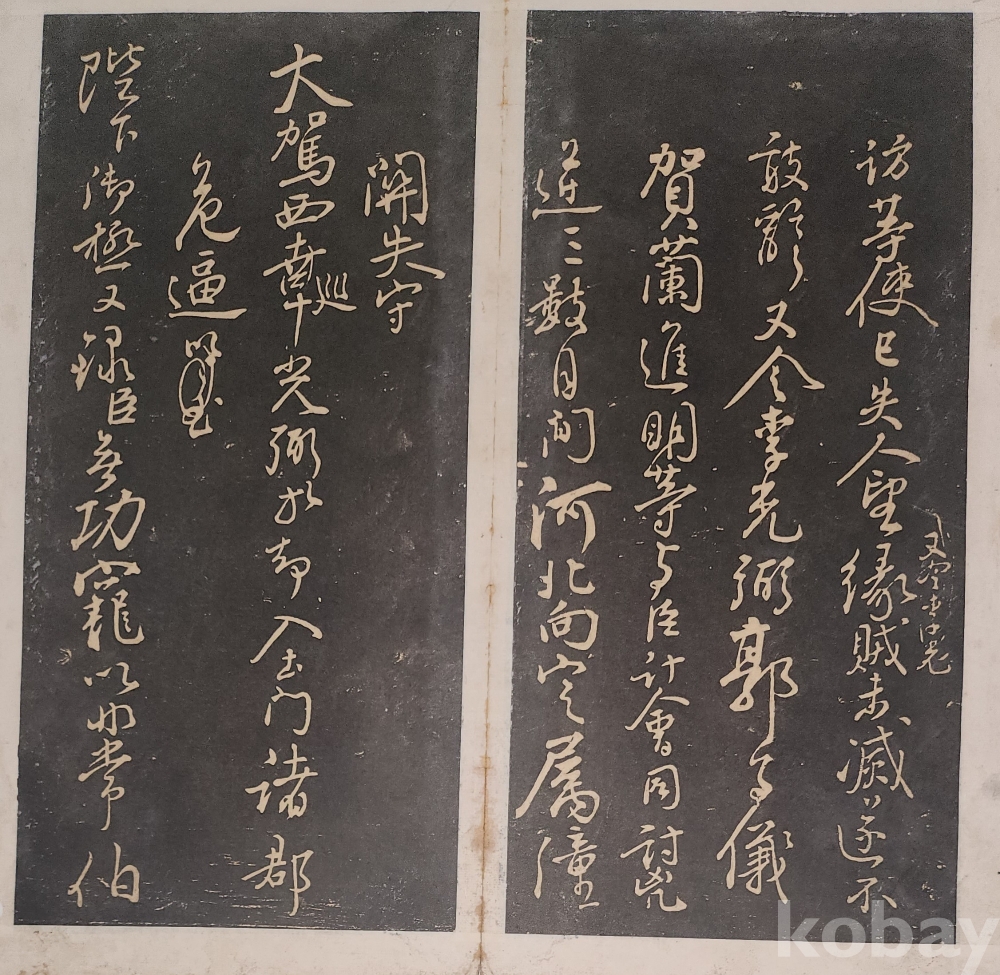 訪等使巳失人望緣賊未滅遂不
敢辭又令李光弼郭子儀
賀蘭進明等与臣計會同討兇
逆三數月間河北向定屬潼
關失守
大駕西幸光弼於却入土门諸郡
巡
危逼
陛下御極又錄臣無功寵以常伯
kobay